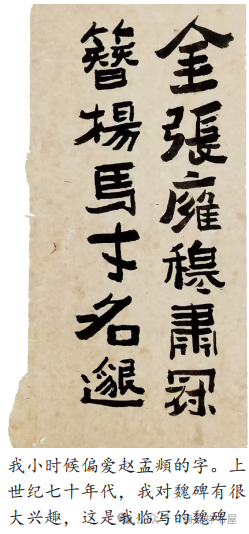 金張雍穆肅冠
簪楊馬才名邈
我小时候偏爱赵孟頫的字。上
世纪七十年代，我对魏碑有很
大兴趣，这是我临写的魏碑